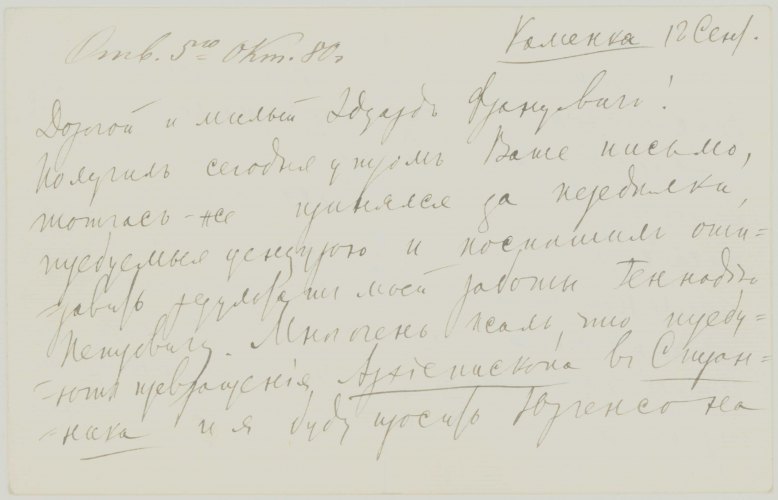 Отв. 5го Окт. 80г
Каменка 12 Сент.
Дорогой и милый Эдуардъ Францовичъ!
Получилъ сегодня утромъ Ваше письмо,
тотчасъ-же принялся за передѣлки,
требуемыя цензурою и поспѣшилъ отп-
равить результаты моей работы Геннадію
Петровичу. Мнѣ очень жаль, что требу-
-ютъ превращенія Архіепископа въ Стран-
-ника и я буду просить Юргенсона